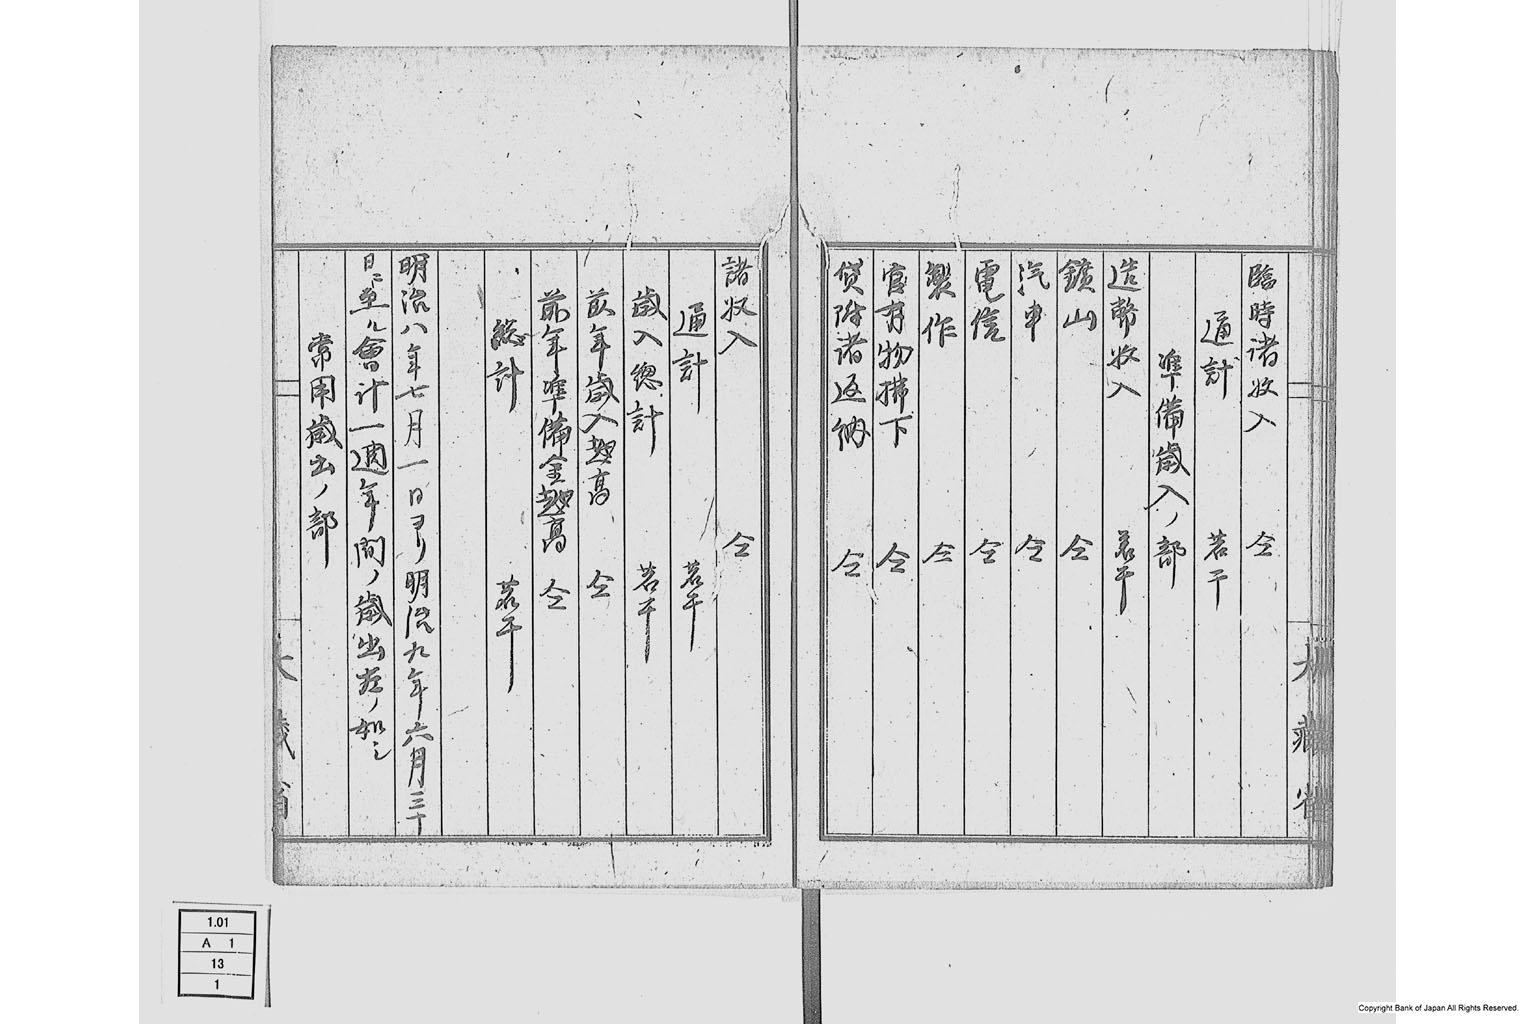 臨時諸收入　仝
通計　若干
準備歳入ノ部
造幣收入　若干
鑛山　仝
汽車　仝
電信　仝
製作　仝
官有物拂下　仝
貸附諸返納　仝
諸收入　仝
通計　若干
歳入總計　若干
前年歳入越高　仝
前年準備金越高　仝
総計　若干
明治八年七月一日ヨリ明治九年六月三十
日ニ至ル會計一週年間ノ歳出左ノ如シ
常用歳出ノ部
大藏省
1.01
A 1
13
1
Copyright Bank of Japan All Rights Reserved.